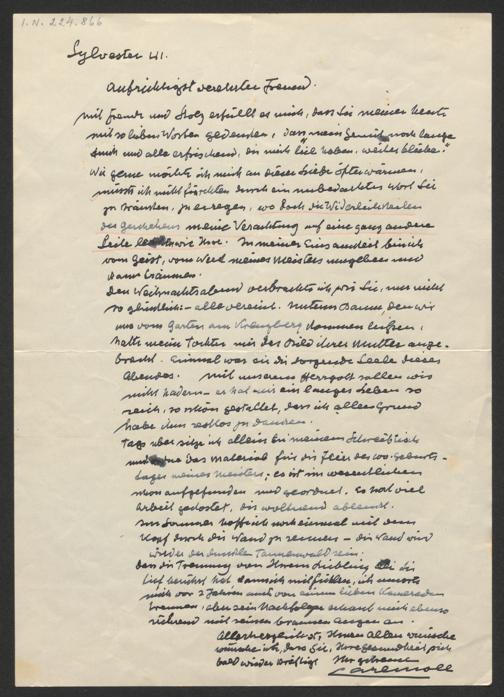 I.N. 224.866
Sylvester 41.
Aufrichtigst verehrter Freund.
Mit Freude und Stolz erfüllt es mich, dass Sie meiner heute
mit so lieben Worten gedenken, dass "mein Genius noch lange
mich und alle erfrischend, die mich lieb haben, weiter bliebe."
Wie gerne möchte ich mich an dieser Liebe öfter wärmen,
müsste ich nicht fürchten durch ein unbedachtes Wort Sie
zu kränken, zu erregen, wo doch die Widerlichkeiten
des Geschehens meine Verachtung auf eine ganz andere
Seite wie Ihre. In meiner Einsamkeit bin ich
vom Geist, vom Werk meines Meisters umgeben und
kann träumen.
Den Weihnachtsabend verbrachte ich wie Sie, nur nicht
so glücklich – alle vereint. Unterm Baum, den wir
uns vom Garten am Kreuzberg kommen liessen,
hatte meine Tochter mir das Bild ihrer Mutter ange-
bracht. Einmal war sie die sorgende Seele dieses
Abends. Mit unserem Herrgott sollen wir
nicht hadern – er hat mir ein langes Leben so
reich, so schön gestaltet, dass ich allen Grund
habe ihm restlos zu danken.
Tags über sitze ich allein bei meinem Schreibtisch
und das Material für die Feier des 100. Geburts-
tages meines Meisters; es ist im wesentlichen
schon aufgefunden und geordnet. Es hat viel
Arbeit gekostet, die wohltuend ablenkt.
Im Sommer hoffe ich noch einmal mit dem
Kopf durch die Wand zu rennen – die Wand wird
wieder der dunkle Tannenwald sein.
Dass die Trennung von Ihrem Liebling Sie
tief berührt hat, kann ich mitfühlen, ich musste
mich vor 2 Jahren auch von einem lieben Kameraden
trennen, aber sein Nachfolger schaut mich ebenso
rührend mit seinen braunen Augen an.
Allerherzlichst, Ihnen Allen
wünsche ich, dass Sie, Ihre Gesundheit sich
bald wieder kräftigt Ihr getreuer
Carl Moll